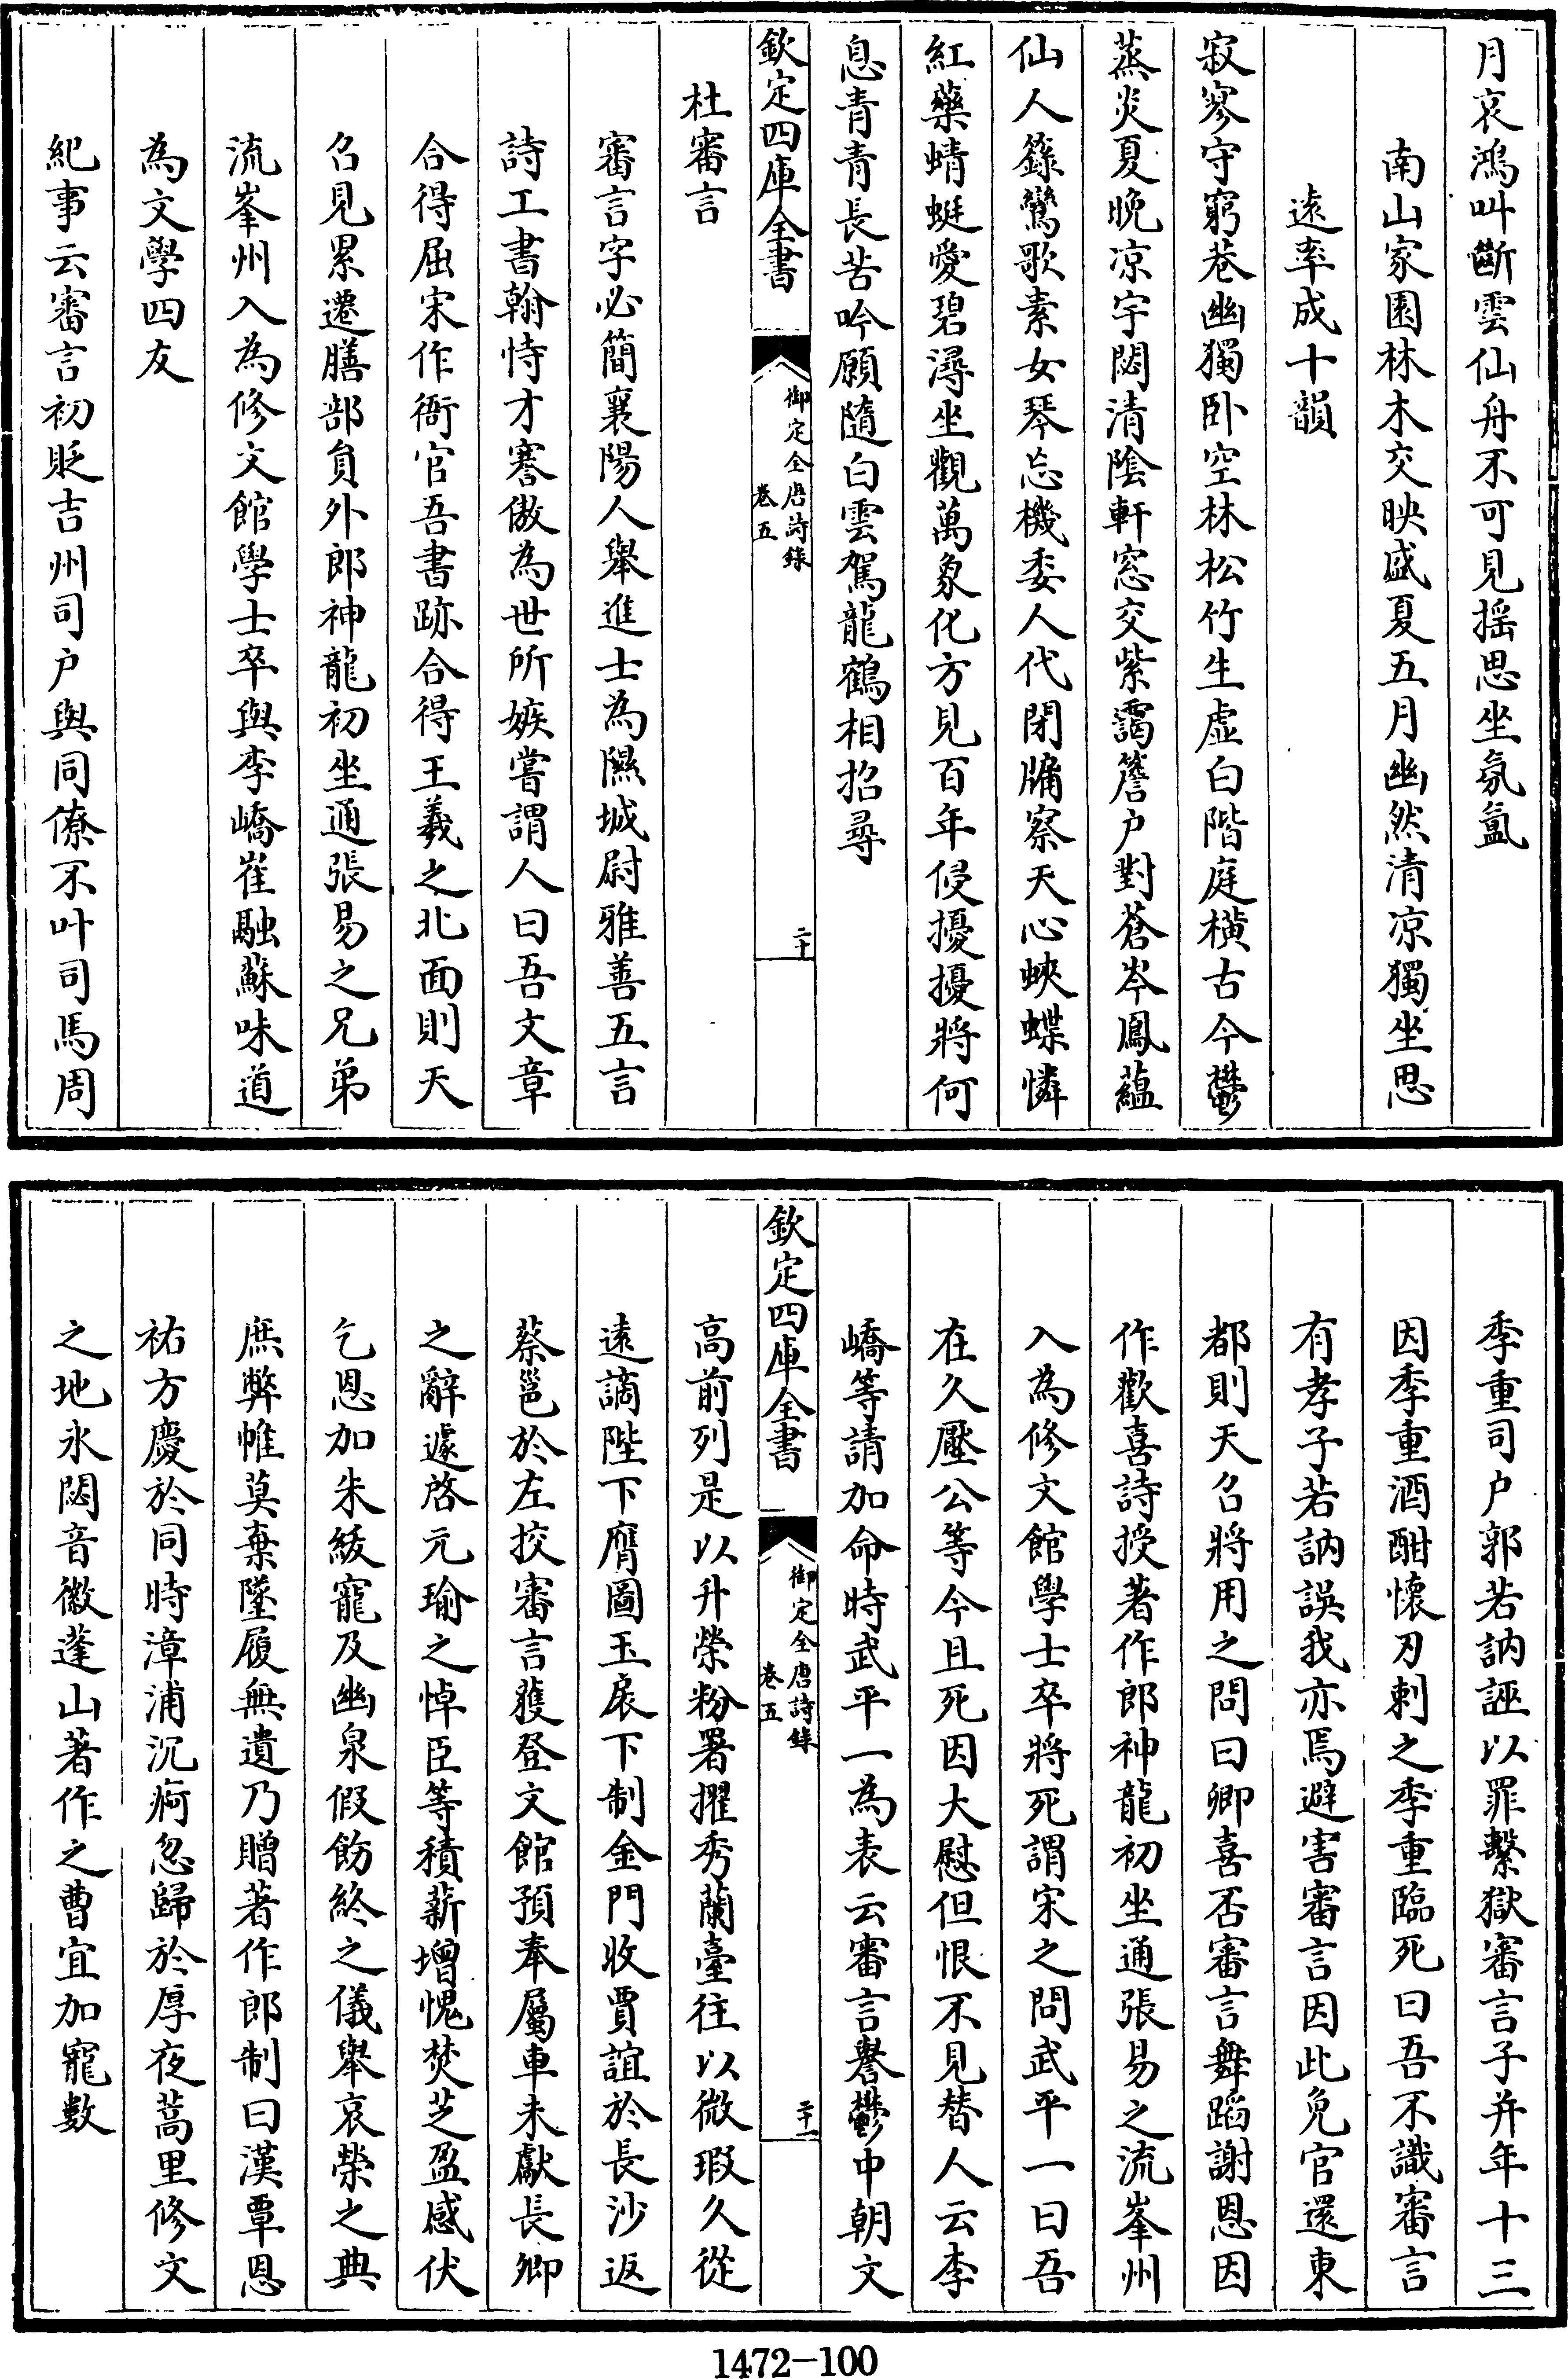 月哀鴻叫斷雲仙舟不可見揺思坐氛氳
南山家園林木交映盛夏五月幽然清凉獨坐思
逺率成十韻
寂寥守窮巷幽獨卧空林松竹生虚白階庭橫古今鬱
蒸炎夏晩凉宇閟清陰軒窓交紫靄簷户對蒼岑鳳蘊
仙人籙鸞歌素女琴忘機委人代閉牖察天心蛺蝶憐
紅藥蜻蜓愛碧潯坐觀萬象化方見百年侵擾擾將何
息青青長苦吟願隨白雲駕龍鶴相招尋
欽定四庫全書
御定全唐詩錄
卷五
二十
杜審言
審言字必簡襄陽人舉進士為隰城尉雅善五言
詩工書翰恃才謇傲為世所嫉嘗謂人曰吾文章
合得屈宋作衙官吾書跡合得王羲之北面則天
召見累遷膳部員外郎神龍初坐通張易之兄弟
流峯州入為修文館學士卒與李嶠崔融蘇味道
為文學四友
紀事云審言初貶吉州司户與同僚不叶司馬周
季重司户郭若訥誣以罪繫獄審言子并年十三
因季重酒酣懷刃刺之季重臨死曰吾不識審言
有孝子若訥誤我亦焉避害審言因此免官還東
都則天召將用之問曰卿喜否審言舞蹈謝恩因
作歡喜詩授著作郎神龍初坐通張易之流峯州
入為修文館學士卒將死謂宋之問武平一曰吾
在久壓公等今且死因大慰但恨不見替人云李
嶠等請加命時武平一為表云審言譽鬱中朝文
欽定四庫全書
御定全唐詩錄
卷五
二十一
高前列是以升榮粉署擢秀蘭臺往以微瑕久從
逺謫陛下膺圖玉扆下制金門收賈誼於長沙返
蔡邕於左挍審言獲登文館預奉屬車未獻長卿
之辭遽啓元瑜之悼臣等積薪增愧焚芝盈感伏
乞恩加朱綬寵及幽泉假飭終之儀舉哀榮之典
庶弊帷莫棄墜履無遺乃贈著作郎制曰漢覃恩
祐方慶於同時漳浦沉痾忽歸於厚夜蒿里修文
之地永閟音徽蓬山著作之曹宜加寵數
1472—100